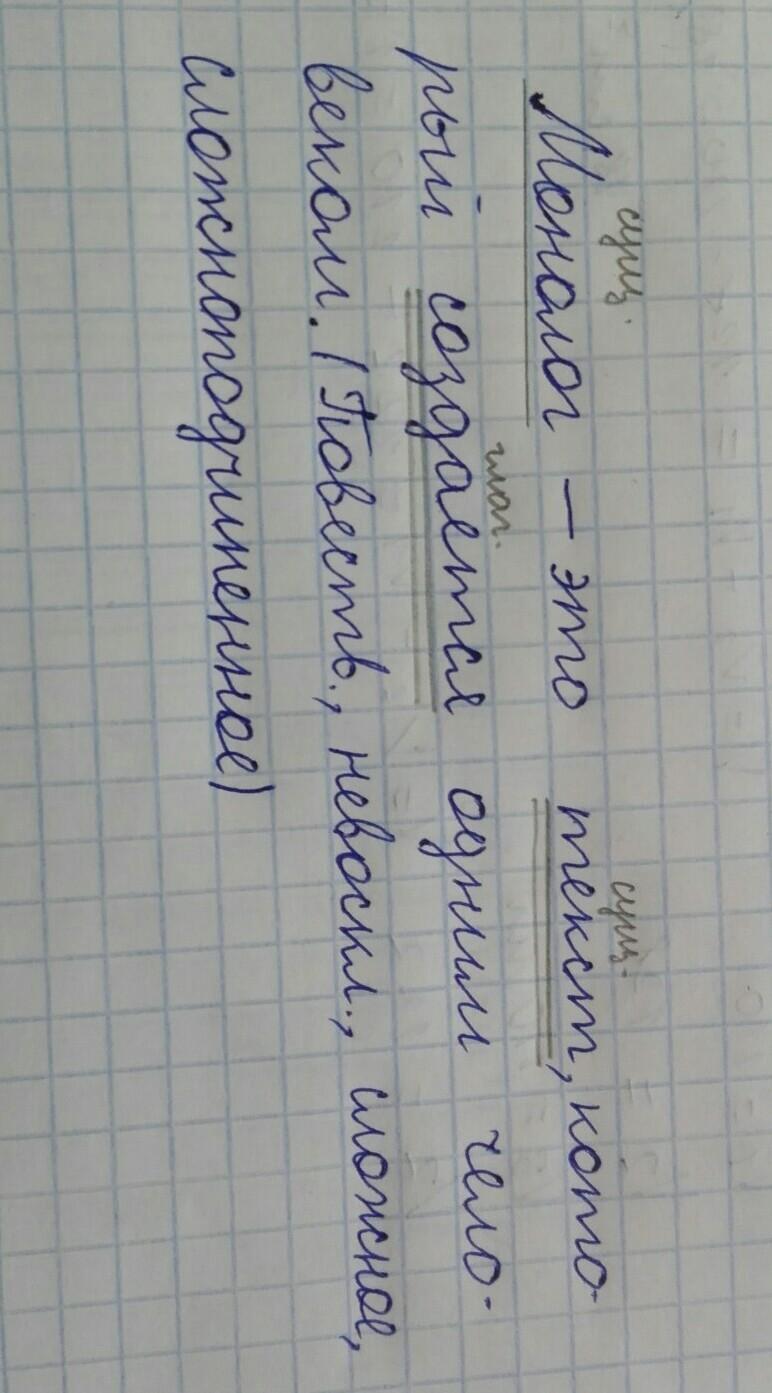 сущ. сущ.
Монолог – это текст, кото-
глаг.
рый создается одним чело-
веком. (Повеств., невоскл., сложное,
сложноподчиненное)